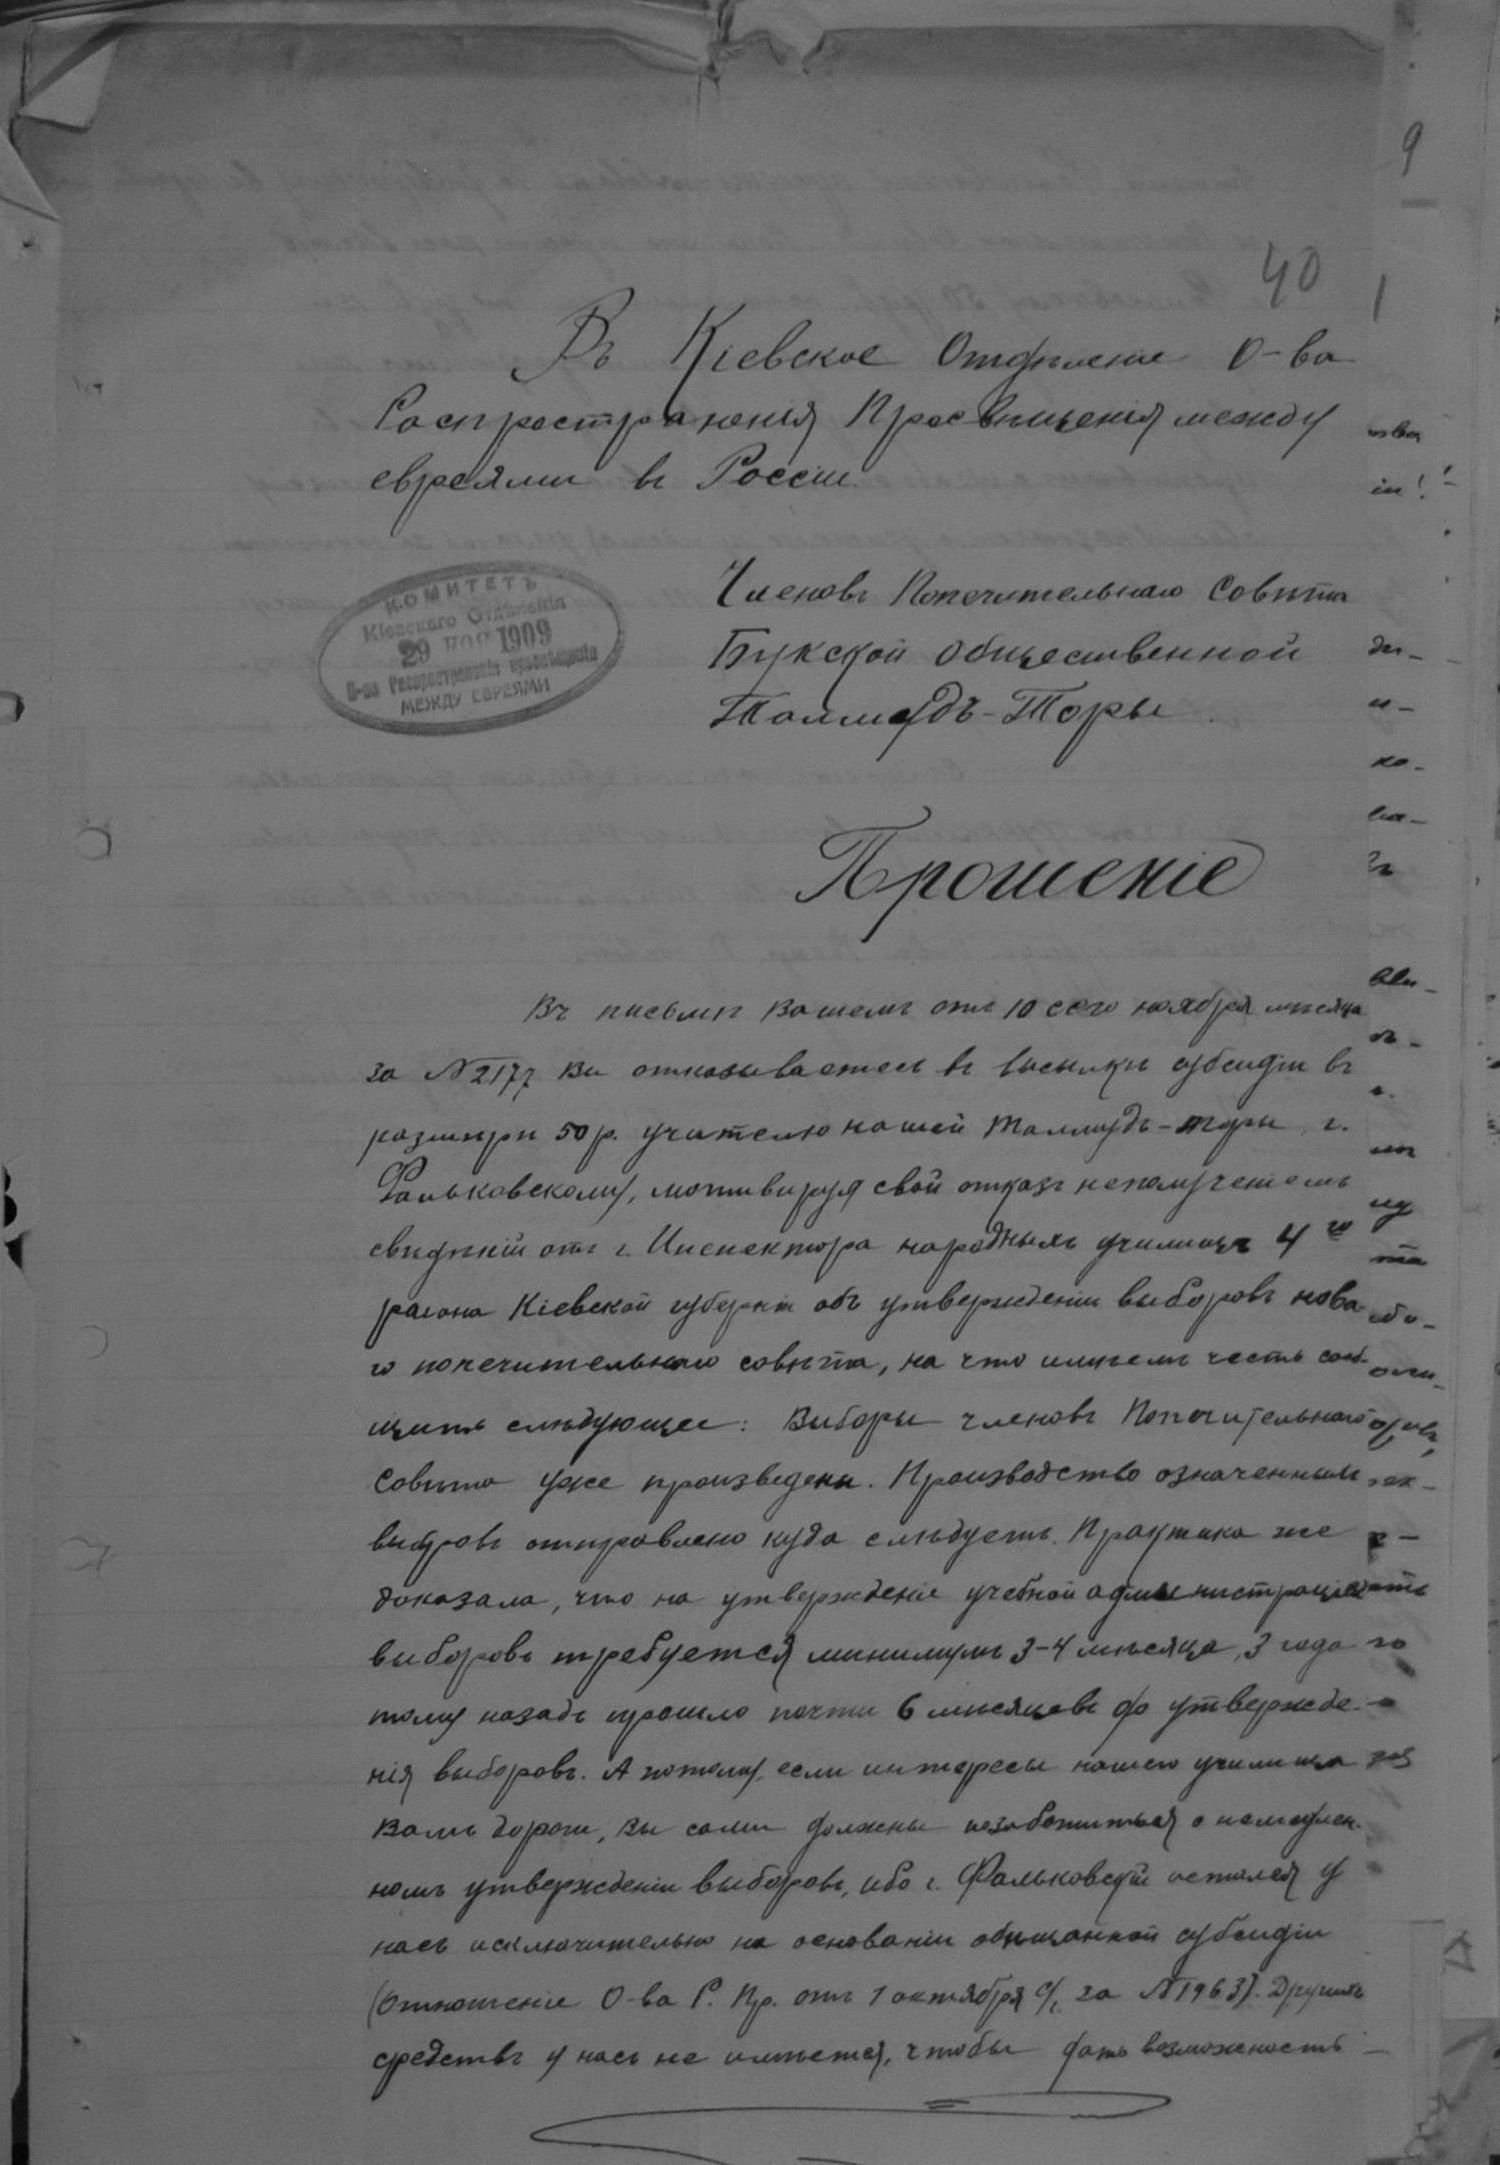 9
40
Въ Кіевское Отдѣленіе О-ва
Распространенія Просвѣщенія между
евреями въ Россіи
КОМИТЕТЪ
Кіевскаго Отдѣленія
29 НОЯ 1909
О-ва Распространенія просвѣщенія
МЕЖДУ ЕВРЕЯМИ
Членовъ Попечительнаго Совѣта
Букской общественной
Талмудъ-Торы
Прошеніе
Въ письмѣ Вашемъ отъ 10 сего ноября мѣсяца
за №2177 Вы отказываетесь въ высылкѣ субсидіи въ
размѣрѣ 50 р. учителю нашей Талмудъ-Торы г.
Фальковскому, мотивируя свой отказъ неполученіемъ
свѣдѣній отъ г. Инспектора народныхъ училищъ 4го
раіона Кіевской губерніи объ утвержденіи выборовъ нова-
го попечительнаго совѣта, на что имѣемъ честь сооб-
щить слѣдующее: Выборы членовъ Попечительнаго
Совѣта уже произведены. Производство означенныхъ
выборовъ отправлено куда слѣдуетъ. Практика же
доказала, что на утвержденіе учебной администраціей
выборовъ требуется минимумъ 3-4 мѣсяца, 3 года
тому назадъ прошло почти 6 мѣсяцевъ до утвержде-
нія выборовъ. А потому, если интересы нашего училища
Вамъ дороги, Вы сами должны позаботиться о немедлен-
номъ утвержденіи выборовъ, ибо г. Фальковскій остался у
насъ исключительно на основаніи обѣщанной субсидіи
(Отношеніе О-ва Р. Пр. отъ 1 октября с/г за №1963). Другихъ
средствъ у насъ не имѣется, чтобы дать возможность